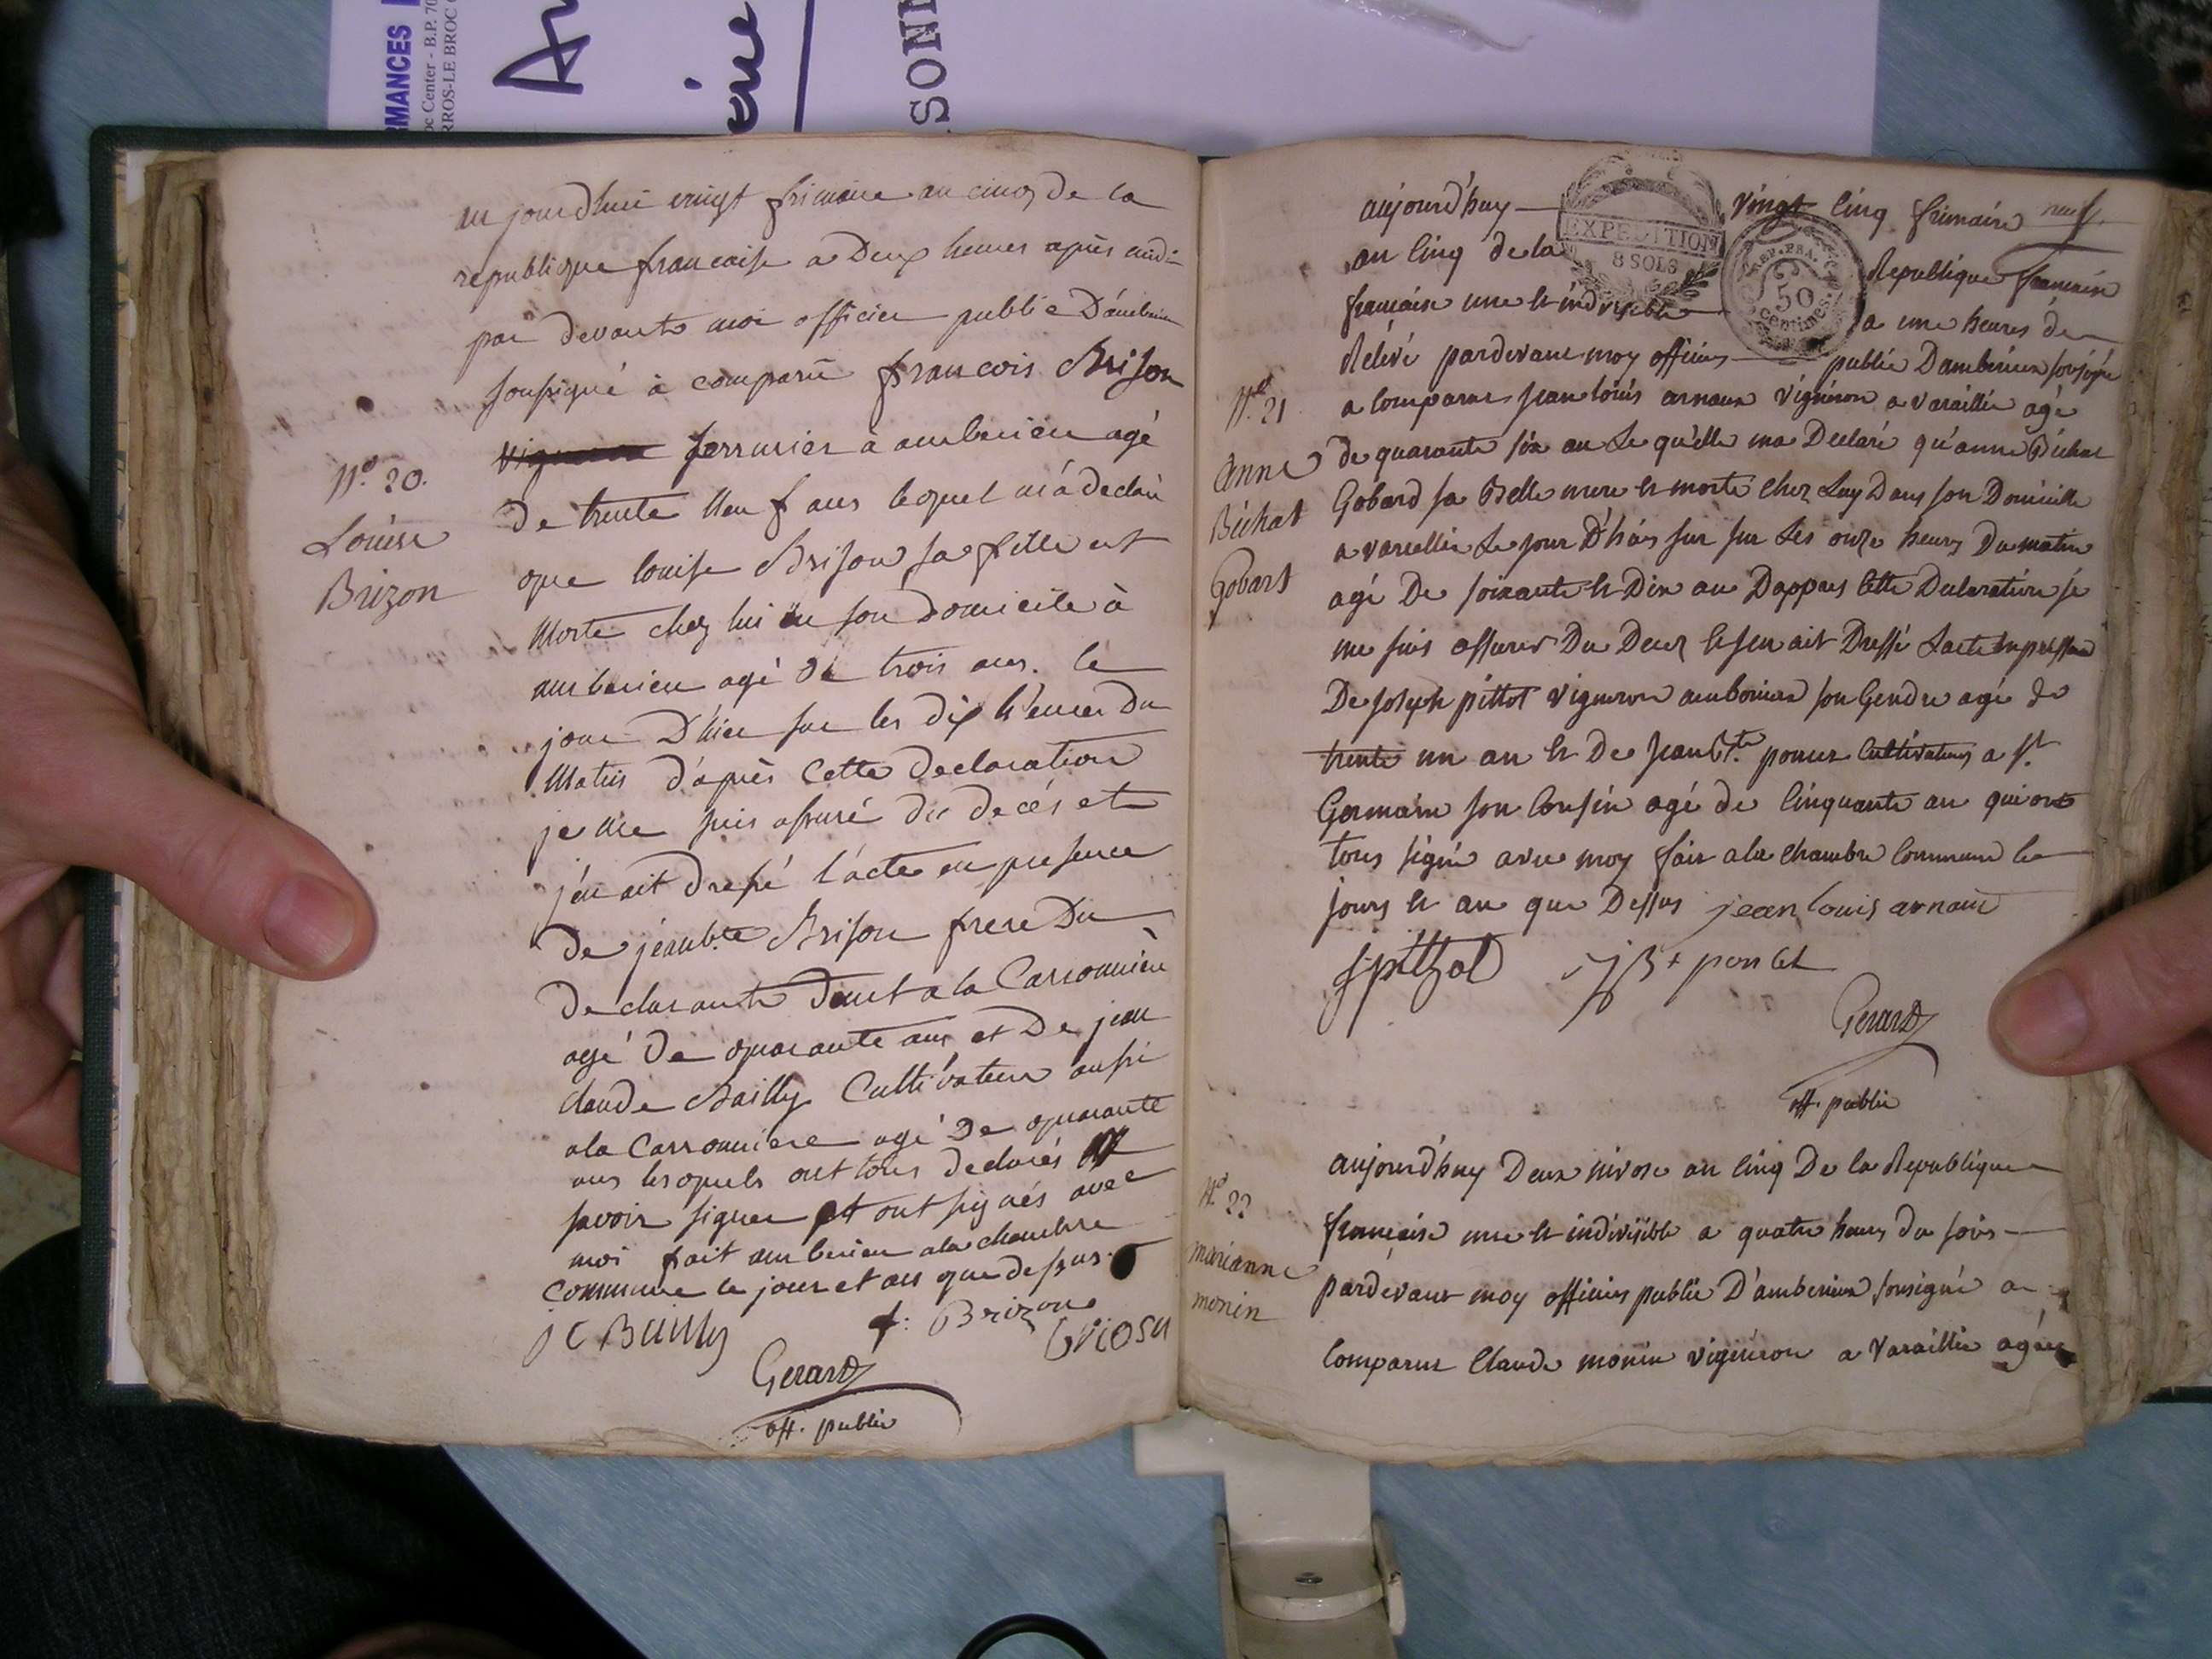 RMANCES
oc Center - B.P. 70
RROS-LE BROC
SONN
aujourdhui vingt frimaire an cinq de la
republique francaise a Deux heures après midi
par devant moi officier public D'ambérieu
soussigné à comparü francois Brison
vigneron serrurier à amberieu agé
de trente neuf ans lequel m'a declaré
que louise Brison sa fille est
Morte chez lui en son Domicile à
amberieu agé de trois ans. le
jour D'hier sur les dix h'eures Du
Matin d'après Cette declaration
je me suis assuré du decés et
j'en ait dressé l'acte en presence
de jeanbte Brison frere Du
declarante demt a la Carronnière
agé De quarante ans et De jean
claude Bailly Cultivateur aussi
ala Carronniere agé De quarante
ans lesquels ont tous declarés
savoir signer et ont signés avec
moi fait amberieu ala chambre
commune le jour et an que dessus.
J C Bailly f: Brizon briosn
Gerard
off. public
No. 20.
Louise
Brizon
EXPEDITION
8 SOLS
REP. FRA.
50
centimes.
aujourd'huy vingt cinq frimaire neuf
an cinq de la Republique francaise
francaise une et indivisible a une heures de
Relevé pardevant moy officier public Dambérieux sousigné
a comparut jean loüis arnaux vigniron a varaillie agé
de quarante six an Le qu'elle ma Declaré qu'anne Bichat
Gobard sa Belle mere et morte chez Luy Dans son Domicille
a vareillie Le jour D'hier sur sur Les onze heures Du matin
agé De soixante et Dix an Dappres Cette Declaration je
me suis assurer Du Deces et jen ait Dressé Lacte
De joseph pittot vigneron amberieux son Gendre agé de
trente un an et De jean Bte poncet Cultivateurs a St
Germain son Cousin agé de cinquante an qui ont
tous signé avec moy fait ala chambre Commune les
jours et an que Dessus jean louis arnaux
J pithol J B + poncet
Gerard
off. public
No 21
anne
Bichat
Gobart
aujourd'huy Deux nivose an cinq De la Republique
francaise une et indivisible a quatre heures du soir
pardévant moy officier public D'amberieux sousigné a
Comparut Claude monin vigniron a Varaillie agée
No 22
marianne
monin